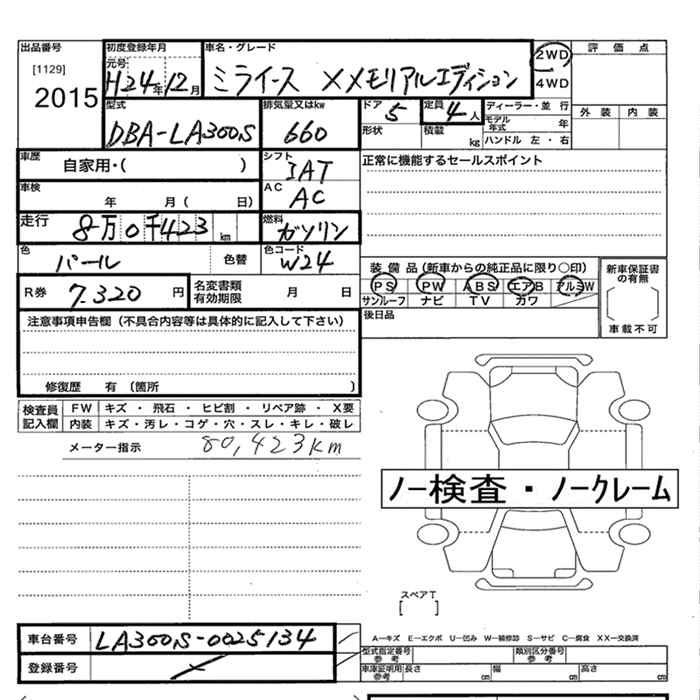 出品番号 初度登録年月 車名・グレード 2WD 評価点
[1129] 元号 H24年12月 ミライース XメモリアルエディションN 4WD
2015 型式 排気量又はkw ドア 5 定員 4人 ディーラー・並行 外装 内装
DBA-LA300S 660 形状 積載 kg モデル年式 年
ハンドル 左・右
車歴 自家用・( ) シフト IAT 正常に機能するセールスポイント
車検 年 月( 日) AC AC
走行 8万0千423km 燃料 ガソリン
色 パール 色替 色コード W24 装備品(新車からの純正品に限り○印) 新車保証書の有無
R券 7.320円 名変書類有効期限 月 日 PS PW ABS エアB アルミW
サンルーフ ナビ TV カワ [ ] 車載不可
注意事項申告欄(不具合内容等は具体的に記入して下さい) 後日品
修復歴 有(箇所 )
検査員記入欄 FW キズ・飛石・ヒビ割・リペア跡・X要
内装 キズ・汚レ・コゲ・穴・スレ・キレ・破レ
メーター指示 80,423km
ノー検査・ノークレーム
スペアT
[ ]
車台番号 LA300S-0025134 A―キズ E―エクボ U―凹み W―補修跡 S―サビ C―腐食 XX―交換済
登録番号 型式指定番号 参考 類別区分番号 参考
車庫証明用 参考 長さ cm 幅 cm 高さ cm